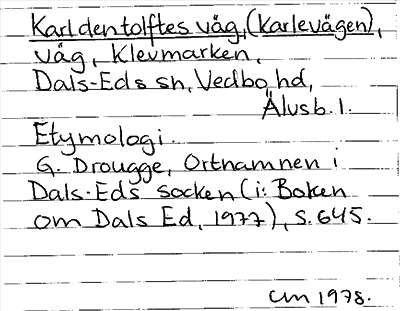 Karl den tolftes väg, (Karlevägen),
väg, Klevmarken,
Dals-Eds sn, Vedbo hd,
Älvsb. l.
Etymologi.
G. Drougge, Ortnamnen i
Dals-Eds socken (i: Boken
om Dals Ed, 1977), s. 645.
CM 1978.